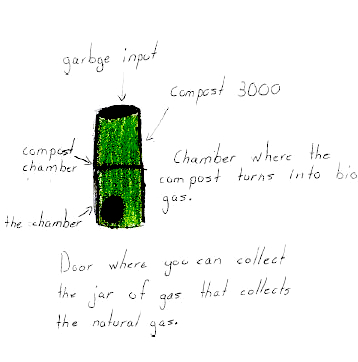 garbge input
Compost 3000
compost
chamber
Chamber where the
compost turns into bio
gas.
the chamber
Door where you can collect
the jar of gas that collects
the natural gas.